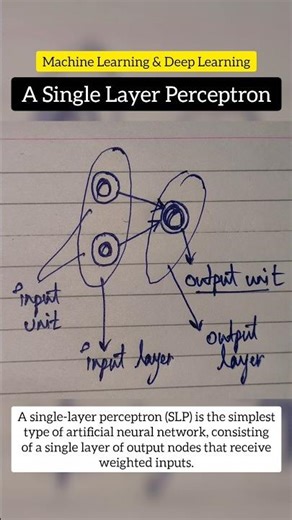 Machine Learning & Deep Learning
A Single Layer Perceptron
input
unit
output unit
input layer
output
layer
A single-layer perceptron (SLP) is the simplest
type of artificial neural network, consisting
of a single layer of output nodes that receive
weighted inputs.